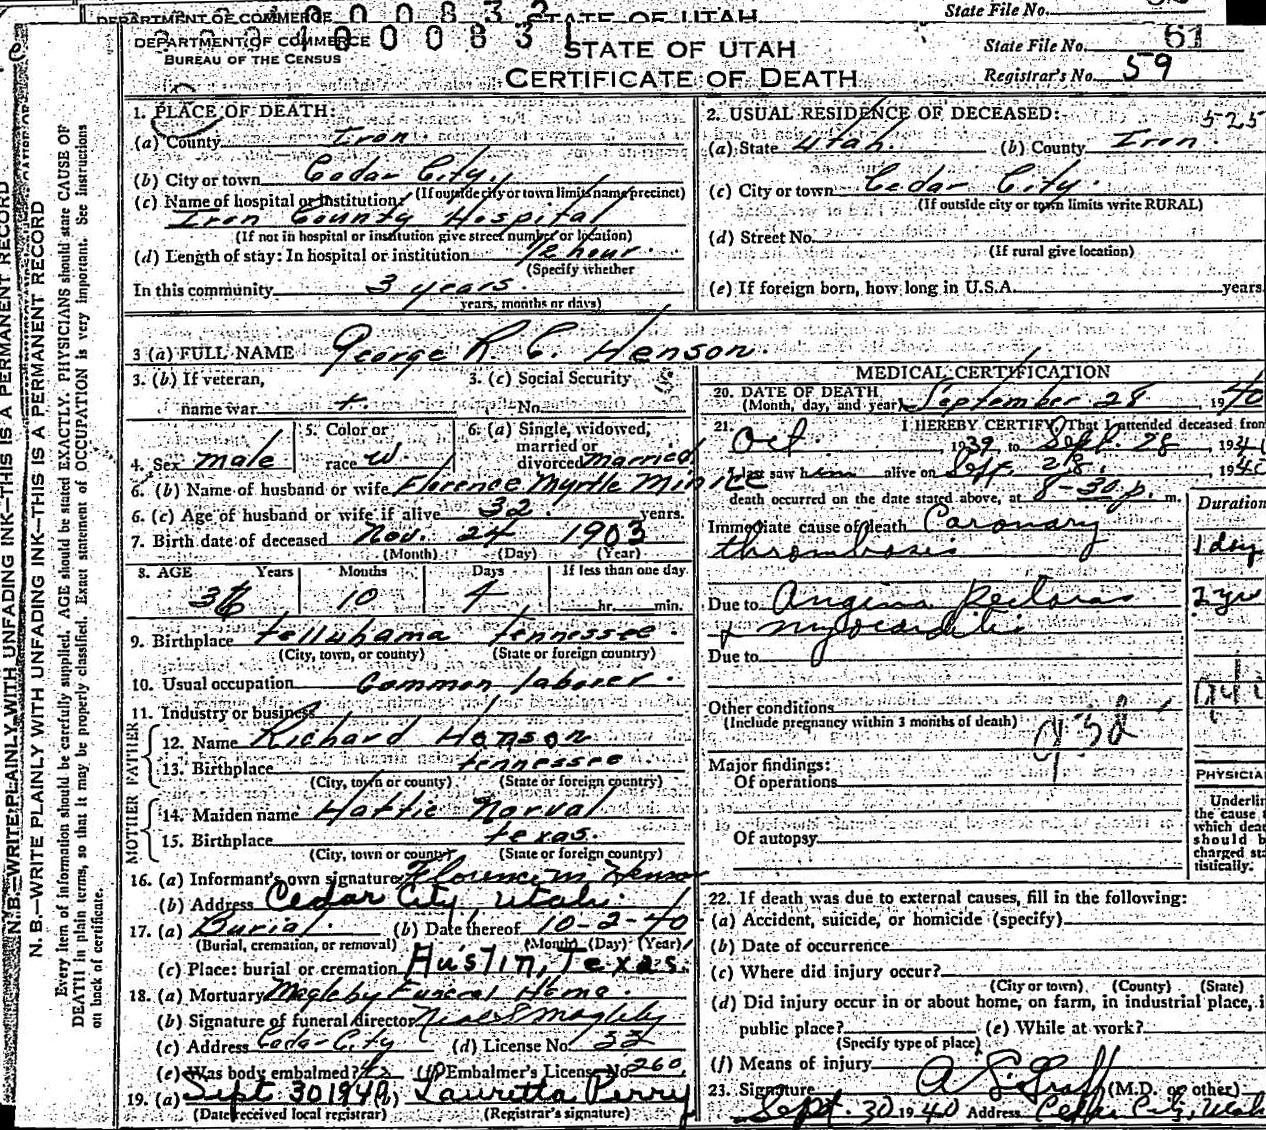 DEPARTMENT OF COMMERCE STATE OF UTAH
State File No.
DEPARTMENT OF COMMERCE
BUREAU OF THE CENSUS
STATE OF UTAH
CERTIFICATE OF DEATH
State File No. 61
Registrar's No. 59
1. PLACE OF DEATH:
(a) County Iron
(b) City or town Cedar City.
(If outside city or town limits name precinct)
(c) Name of hospital or institution:
Iron County Hospital
(If not in hospital or institution give street number or location)
(d) Length of stay: In hospital or institution 1/2 hour.
(Specify whether
In this community 3 years.
years, months or days)
2. USUAL RESIDENCE OF DECEASED: 525
(a) State Utah. (b) County Iron.
(c) City or town Cedar City.
(If outside city or town limits write RURAL)
(d) Street No.
(If rural give location)
(e) If foreign born, how long in U.S.A. years.
3 (a) FULL NAME George R. C. Henson.
3. (b) If veteran,
name war
3. (c) Social Security
No.
4. Sex male
5. Color or
race W.
6. (a) Single, widowed,
married or
divorced married
6. (b) Name of husband or wife Florence Myrtle Minice
6. (c) Age of husband or wife if alive 32. years.
7. Birth date of deceased Nov. 24 1903
(Month) (Day) (Year)
8. AGE Years Months Days If less than one day
36 10 4 hr. min.
9. Birthplace Telluhama Tennessee.
(City, town, or county) (State or foreign country)
10. Usual occupation Common laborer.
11. Industry or business
FATHER
12. Name Richard Henson
13. Birthplace Tennessee
(City, town or county) (State or foreign country)
MOTHER
14. Maiden name Hattie Norval
15. Birthplace Texas.
(City, town or county) (State or foreign country)
16. (a) Informant's own signature Florence M Henson
(b) Address Cedar City Utah.
17. (a) Burial. (b) Date thereof 10-2-40
(Burial, cremation, or removal) (Month) (Day) (Year)
(c) Place: burial or cremation Austin, Texas.
18. (a) Mortuary Magleby Funeral Home.
(b) Signature of funeral director Magleby
(c) Address Cedar City (d) License No. 32
(e) Was body embalmed? (f) Embalmer's License No. 260
19. (a) Sept 30 1940 Lauretta Perry
(Date received local registrar) (Registrar's signature)
MEDICAL CERTIFICATION
20. DATE OF DEATH
(Month, day, and year) September 28, 1940
21. I HEREBY CERTIFY, That I attended deceased from
Oct. 1939 to Sept. 28 194
I last saw him alive on Sept. 28. 1940
death occurred on the date stated above, at 8-30 p. m.
Duration
Immediate cause of death Coronary
thrombosis 1 day
Due to Angina Pectoras 2 yrs
+ myocarditis
Due to
Other conditions
(Include pregnancy within 3 months of death)
Major findings:
Of operations
PHYSICIA
Of autopsy
Underlin
the cause t
which deat
should b
charged sta
tistically.
22. If death was due to external causes, fill in the following:
(a) Accident, suicide, or homicide (specify)
(b) Date of occurrence
(c) Where did injury occur?
(City or town) (County) (State)
(d) Did injury occur in or about home, on farm, in industrial place, i
public place? (e) While at work?
(Specify type of place)
(f) Means of injury
23. Signature A. L. Graff (M.D. or other)
Sept. 30 1940 Address Cedar City, Utah
N. B.—WRITE PLAINLY WITH UNFADING INK—THIS IS A PERMANENT RECORD
N. B.—WRITE PLAINLY WITH UNFADING INK—THIS IS A PERMANENT RECORD
Every item of information should be carefully supplied. AGE should be stated EXACTLY. PHYSICIANS should state CAUSE OF
DEATH in plain terms, so that it may be properly classified. Exact statement of OCCUPATION is very important. See instructions
on back of certificate.